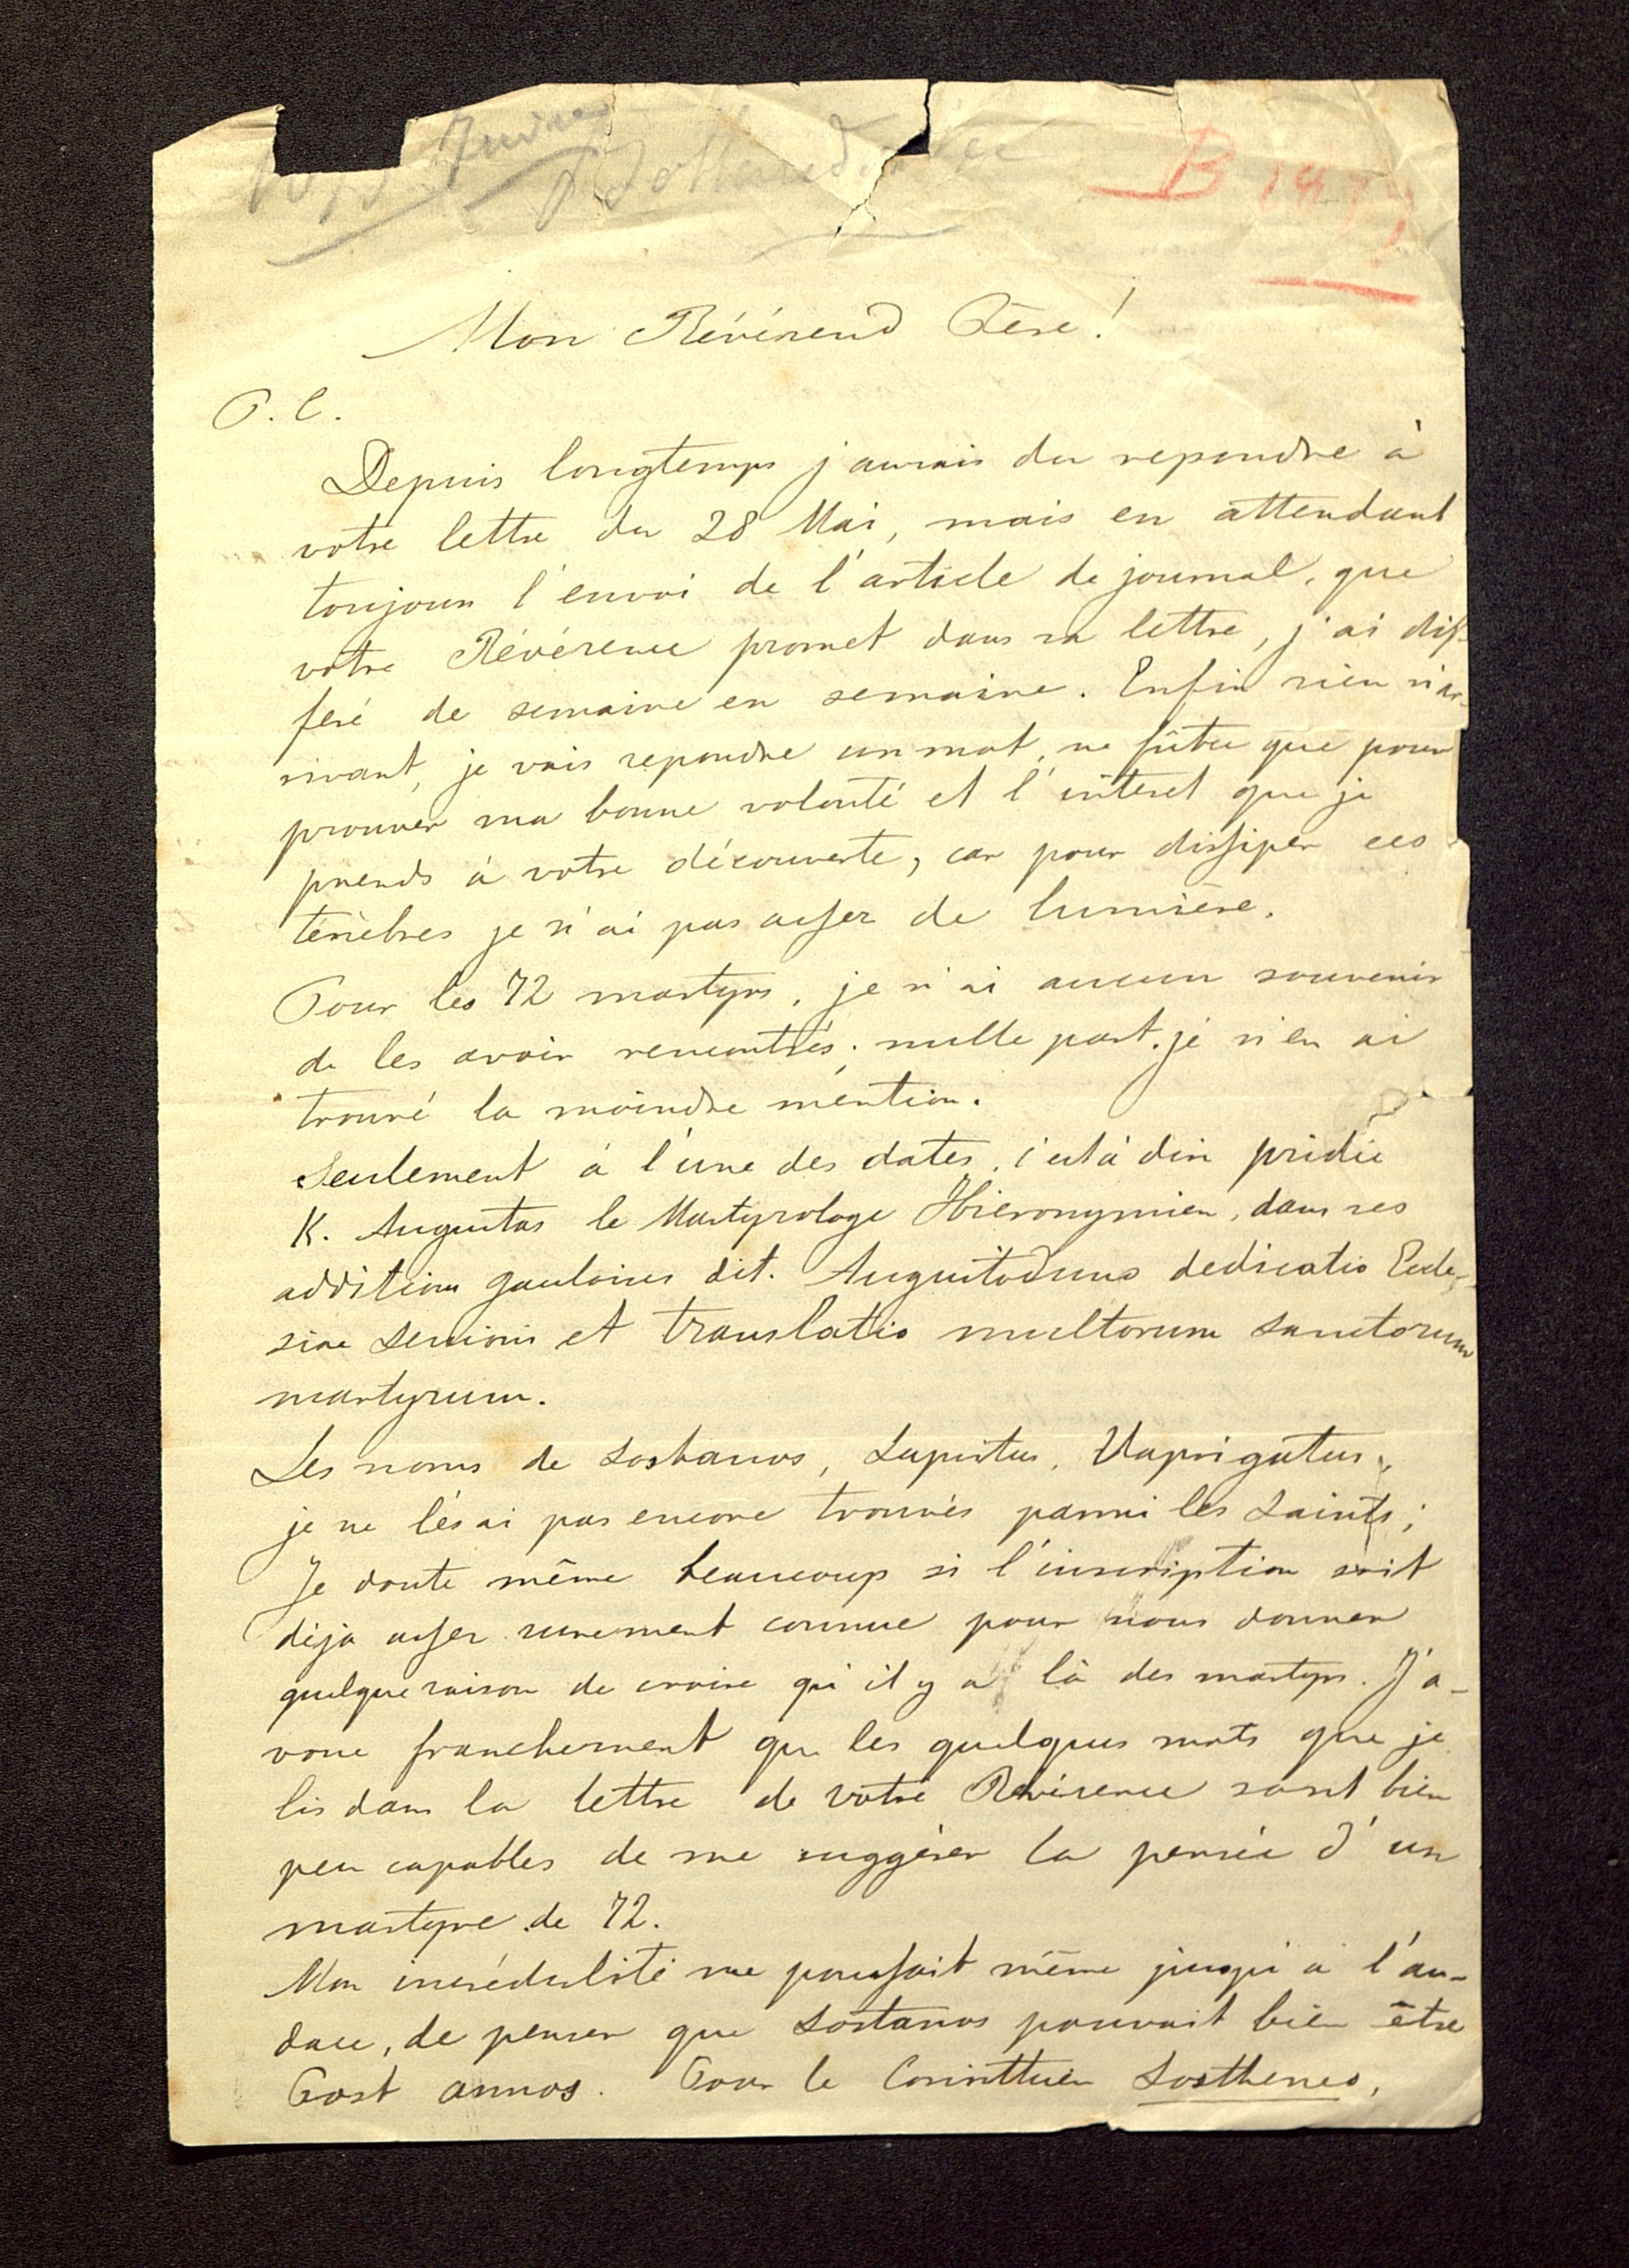 B 187
Mon Révérend Père!
P. C.
Depuis longtemps j'aurais du repondre à
votre lettre du 28 Mai, mais en attendant
toujours l'envoi de l'article de journal, que
votre Révérence promet dans sa lettre, j'ai dif-
feré de semaine en semaine. Enfin rien n'ar-
rivant, je vais repondre un mot, ne fûtce que pour
prouver ma bonne volonté et l'intèret que je
prends à votre découverte, car pour dissiper ces
tenèbres je n'ai pas assez de lumière.
Pour les 72 martyrs, je n'ai aucun souvenir
de les avoir rencontrés; nulle part je n'en ai
trouvé la moindre mention.
Seulement à l'une des dates, c'est à dire pridie
K. Augustas le Martyrologe Hieronymien, dans ses
additions gauloises dit. Augustoduno dedicatio Eccle-
siae senioris et translatio multorum sanctorum
martyrum.
Les noms de Sostanos, Lupitus, Vaprigatus,
je ne lés ai pas encore trouvés parmi les Saints;
Je doute même beaucoup si l'inscription soit
déja assez surement connue pour nous donner
quelque raison de croire qu'il y a là des martyrs. J'a-
voue franchement que les quelques mots que je
lis dans la lettre de votre Révérence sont bien
peu capables de me suggérer la pensée d'un
martyre de 72.
Mon incrédulité me poussait même jusqu'à l'au-
dace, de penser que Sostanos pouvait bien être
Post annos. Pour le Corinthien Sosthenes,